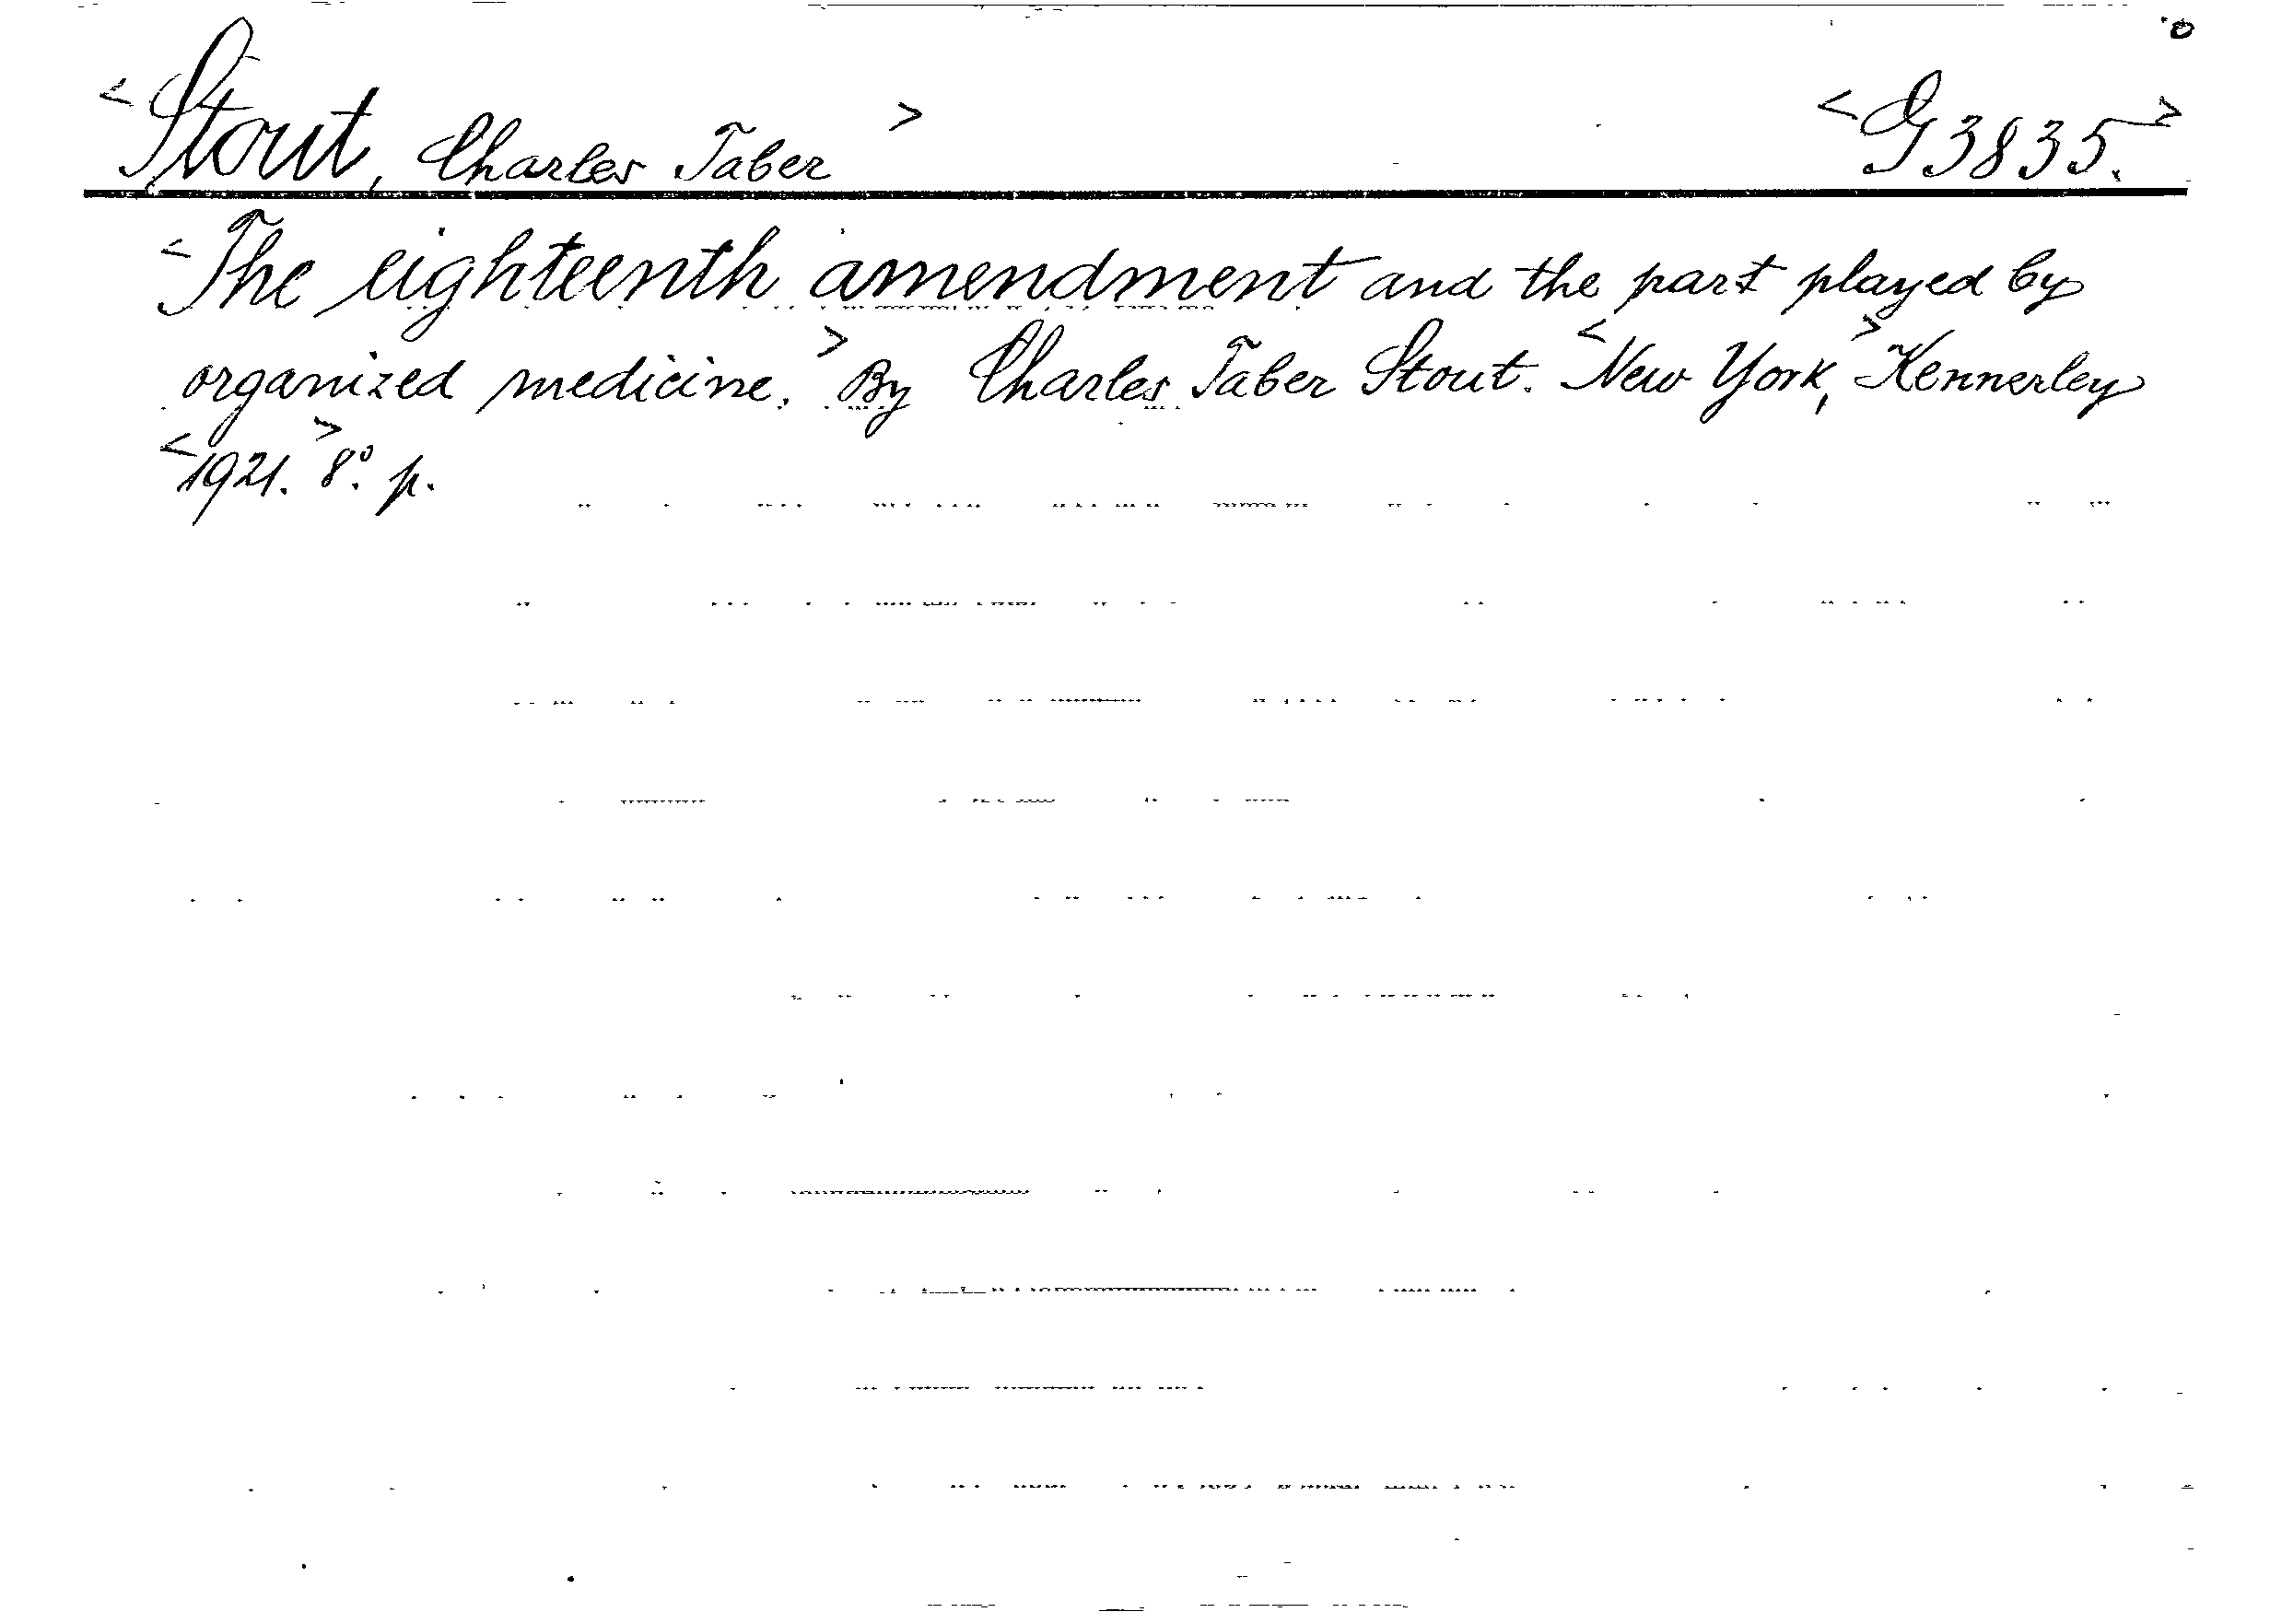 <Stout, Charles Taber> <G3835.>
<The eighteenth amendment and the part played by
organized medicine.> By Charles Taber Stout. <New York,> Kennerley
<1921.> 8°. p.